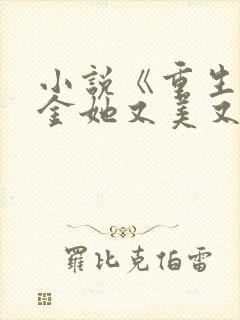 小説《重生
金她又美又
羅比克伯雷